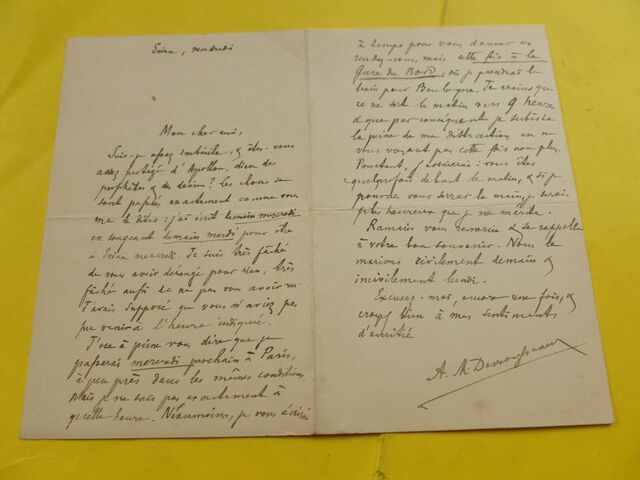 Evian, vendredi
Mon cher ami,
Suis-je assez imbécile, & êtes-vous
assez protégé d'Apollon, dieu de
prophètes & des devins ! Les choses se
sont passées exactement comme vous
me le dites : j'ai écrit demain mercredi
en songeant demain mardi pour être
à Evian mercredi. Je suis très fâché
de vous avoir dérangé pour rien, très
fâché aussi de ne pas vous avoir vu.
J'avais supposé que vous n'aviez pas
pu venir à l'heure indiquée.
J'ose à peine vous dire que je
passerai mercredi prochain à Paris,
à peu près dans les mêmes conditions.
Mais je ne sais pas exactement à
quelle heure. Néanmoins, je vous écrirai
à temps pour vous donner un
rendez-vous, mais cette fois à la
Gare du Nord, où je prendrai le
train pour Boulogne. Je crains que
ce ne soit le matin vers 9 heures,
& que par conséquent je subisse
la peine de ma distraction en ne
vous voyant pas cette fois non plus.
Pourtant, j'essaierai : vous êtes
quelquefois debout le matin, & si je
pouvais vous serrer la main, je serais
plus heureux que je ne mérite.
Ramain vous remercie & se rappelle
à votre bon souvenir. Nous le
marions civilement demain &
incivilement lundi.
Excusez-moi, encore une fois, &
croyez bien à mes sentiments
d'amitié
A. M. Desrousseaux